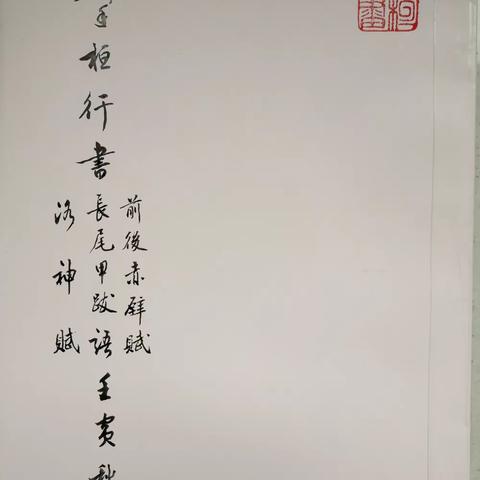 前後赤壁賦
桓行書長尾甲跋語壬寅秋
洛神賦